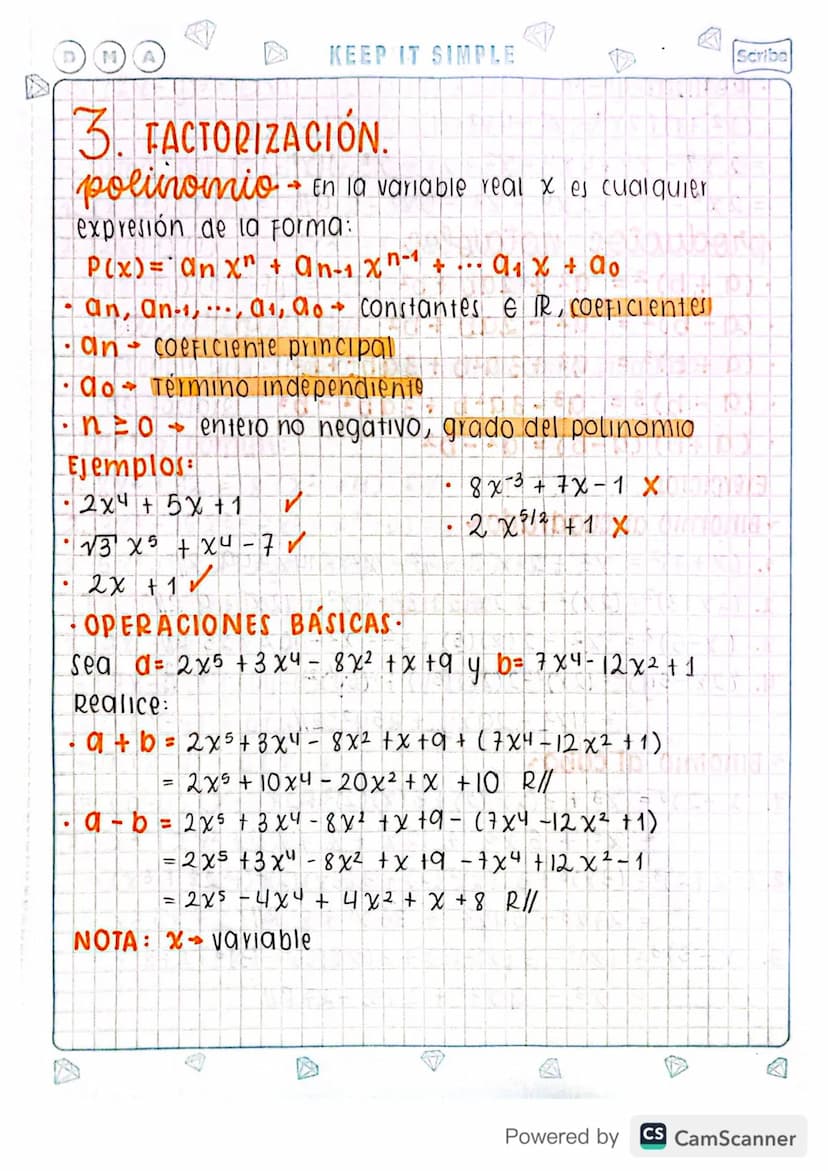 D M A KEEP IT SIMPLE Scribe
3. FACTORIZACIÓN.
polinomio → En la variable real x es cualquier
expresión de la forma:
P(x) = an xⁿ + an-1 xⁿ⁻¹ + ... a₁ x + a₀
· an, an-1, ..., a₁, a₀ → constantes ∈ ℝ, coeficientes
· an → coeficiente principal
· a₀ → Término independiente
· n ≥ 0 → entero no negativo, grado del polinomio
Ejemplos:
· 2x⁴ + 5x + 1 ✓
· √3 x⁵ + x⁴ - 7 ✓
· 2x + 1 ✓
· 8x⁻³ + 7x - 1 X
· 2 x^5/2 + 1 X
· OPERACIONES BÁSICAS ·
Sea a= 2x⁵ + 3x⁴ - 8x² + x + 9 y b= 7x⁴ - 12x² + 1
Realice:
· a + b = 2x⁵ + 3x⁴ - 8x² + x + 9 + (7x⁴ - 12x² + 1)
= 2x⁵ + 10x⁴ - 20x² + x + 10 R//
· a - b = 2x⁵ + 3x⁴ - 8x² + x + 9 - (7x⁴ - 12x² + 1)
= 2x⁵ + 3x⁴ - 8x² + x + 9 - 7x⁴ + 12x² - 1
= 2x⁵ - 4x⁴ + 4x² + x + 8 R//
NOTA: x → variable
Powered by CS CamScanner